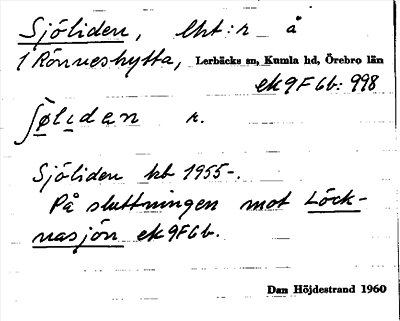 Sjöliden, lht:r å
1 Rönneshytta, Lerbäcks sn, Kumla hd, Örebro län
ek 9F6b: 998
ʃø̀lidan r.
Sjöliden kb 1955-.
På sluttningen mot Löck-
nasjön ek 9F6b.
Dan Höjdestrand 1960